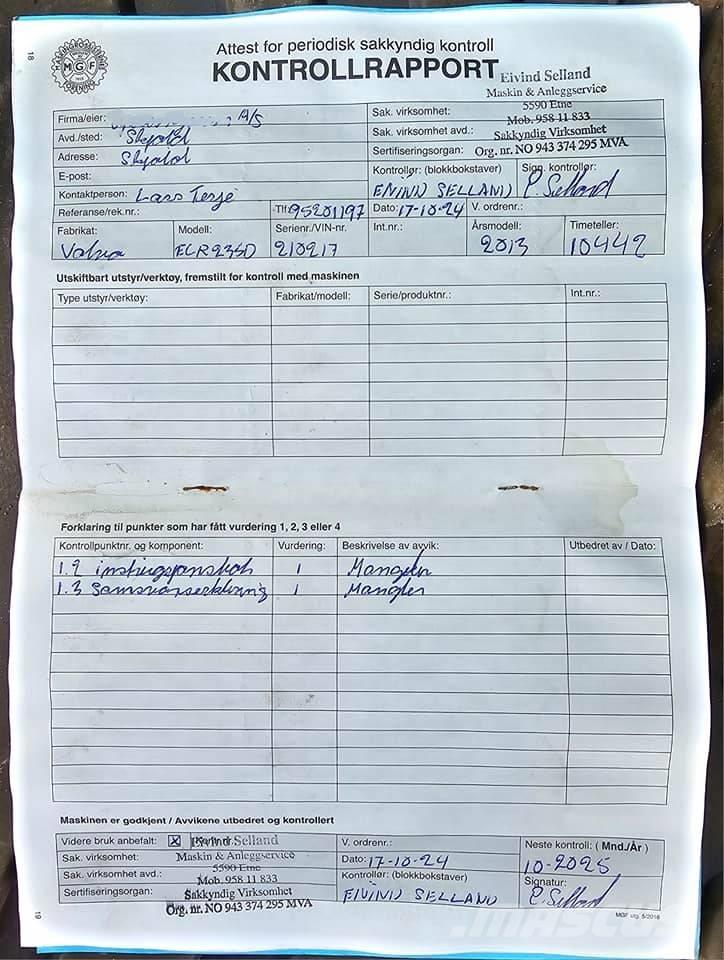 18
MGF
Attest for periodisk sakkyndig kontroll
KONTROLLRAPPORT
Eivind Selland
Maskin & Anleggservice
5590 Etne
Mob. 958 11 833
Sakkyndig Virksomhet
Org. nr. NO 943 374 295 MVA
Firma/eier: A/S
Avd./sted: Skjold
Adresse: Skjold
E-post:
Kontaktperson: Lars Terje
Referanse/rek.nr.: Tlf: 95201197
Sak. virksomhet:
Sak. virksomhet avd.:
Sertifiseringsorgan:
Kontrollør: (blokkbokstaver) EIVIND SELLAND
Sign. kontrollør: E. Selland
Dato: 17-10-24 V. ordrenr.:
Fabrikat: Volvo Modell: ECR235D Serienr./VIN-nr. 210217 Int.nr.: Årsmodell: 2013 Timeteller: 10442
Utskiftbart utstyr/verktøy, fremstilt for kontroll med maskinen
Type utstyr/verktøy: Fabrikat/modell: Serie/produktnr.: Int.nr.:
Forklaring til punkter som har fått vurdering 1, 2, 3 eller 4
Kontrollpunktnr. og komponent: Vurdering: Beskrivelse av avvik: Utbedret av / Dato:
1.2 1 Mangler
1.3 Samsvarserklæring 1 Mangler
Maskinen er godkjent / Avvikene utbedret og kontrollert
Videre bruk anbefalt: X Eivind Selland
Sak. virksomhet: Maskin & Anleggservice
5590 Etne
Sak. virksomhet avd.: Mob. 958 11 833
Sertifiseringsorgan: Sakkyndig Virksomhet
Org. nr. NO 943 374 295 MVA
V. ordrenr.:
Dato: 17-10-24
Kontrollør: (blokkbokstaver)
EIVIND SELLAND
Neste kontroll: ( Mnd./År )
10-2025
Signatur:
E. Selland
19
MGF utg. 5/2018
MASCUS